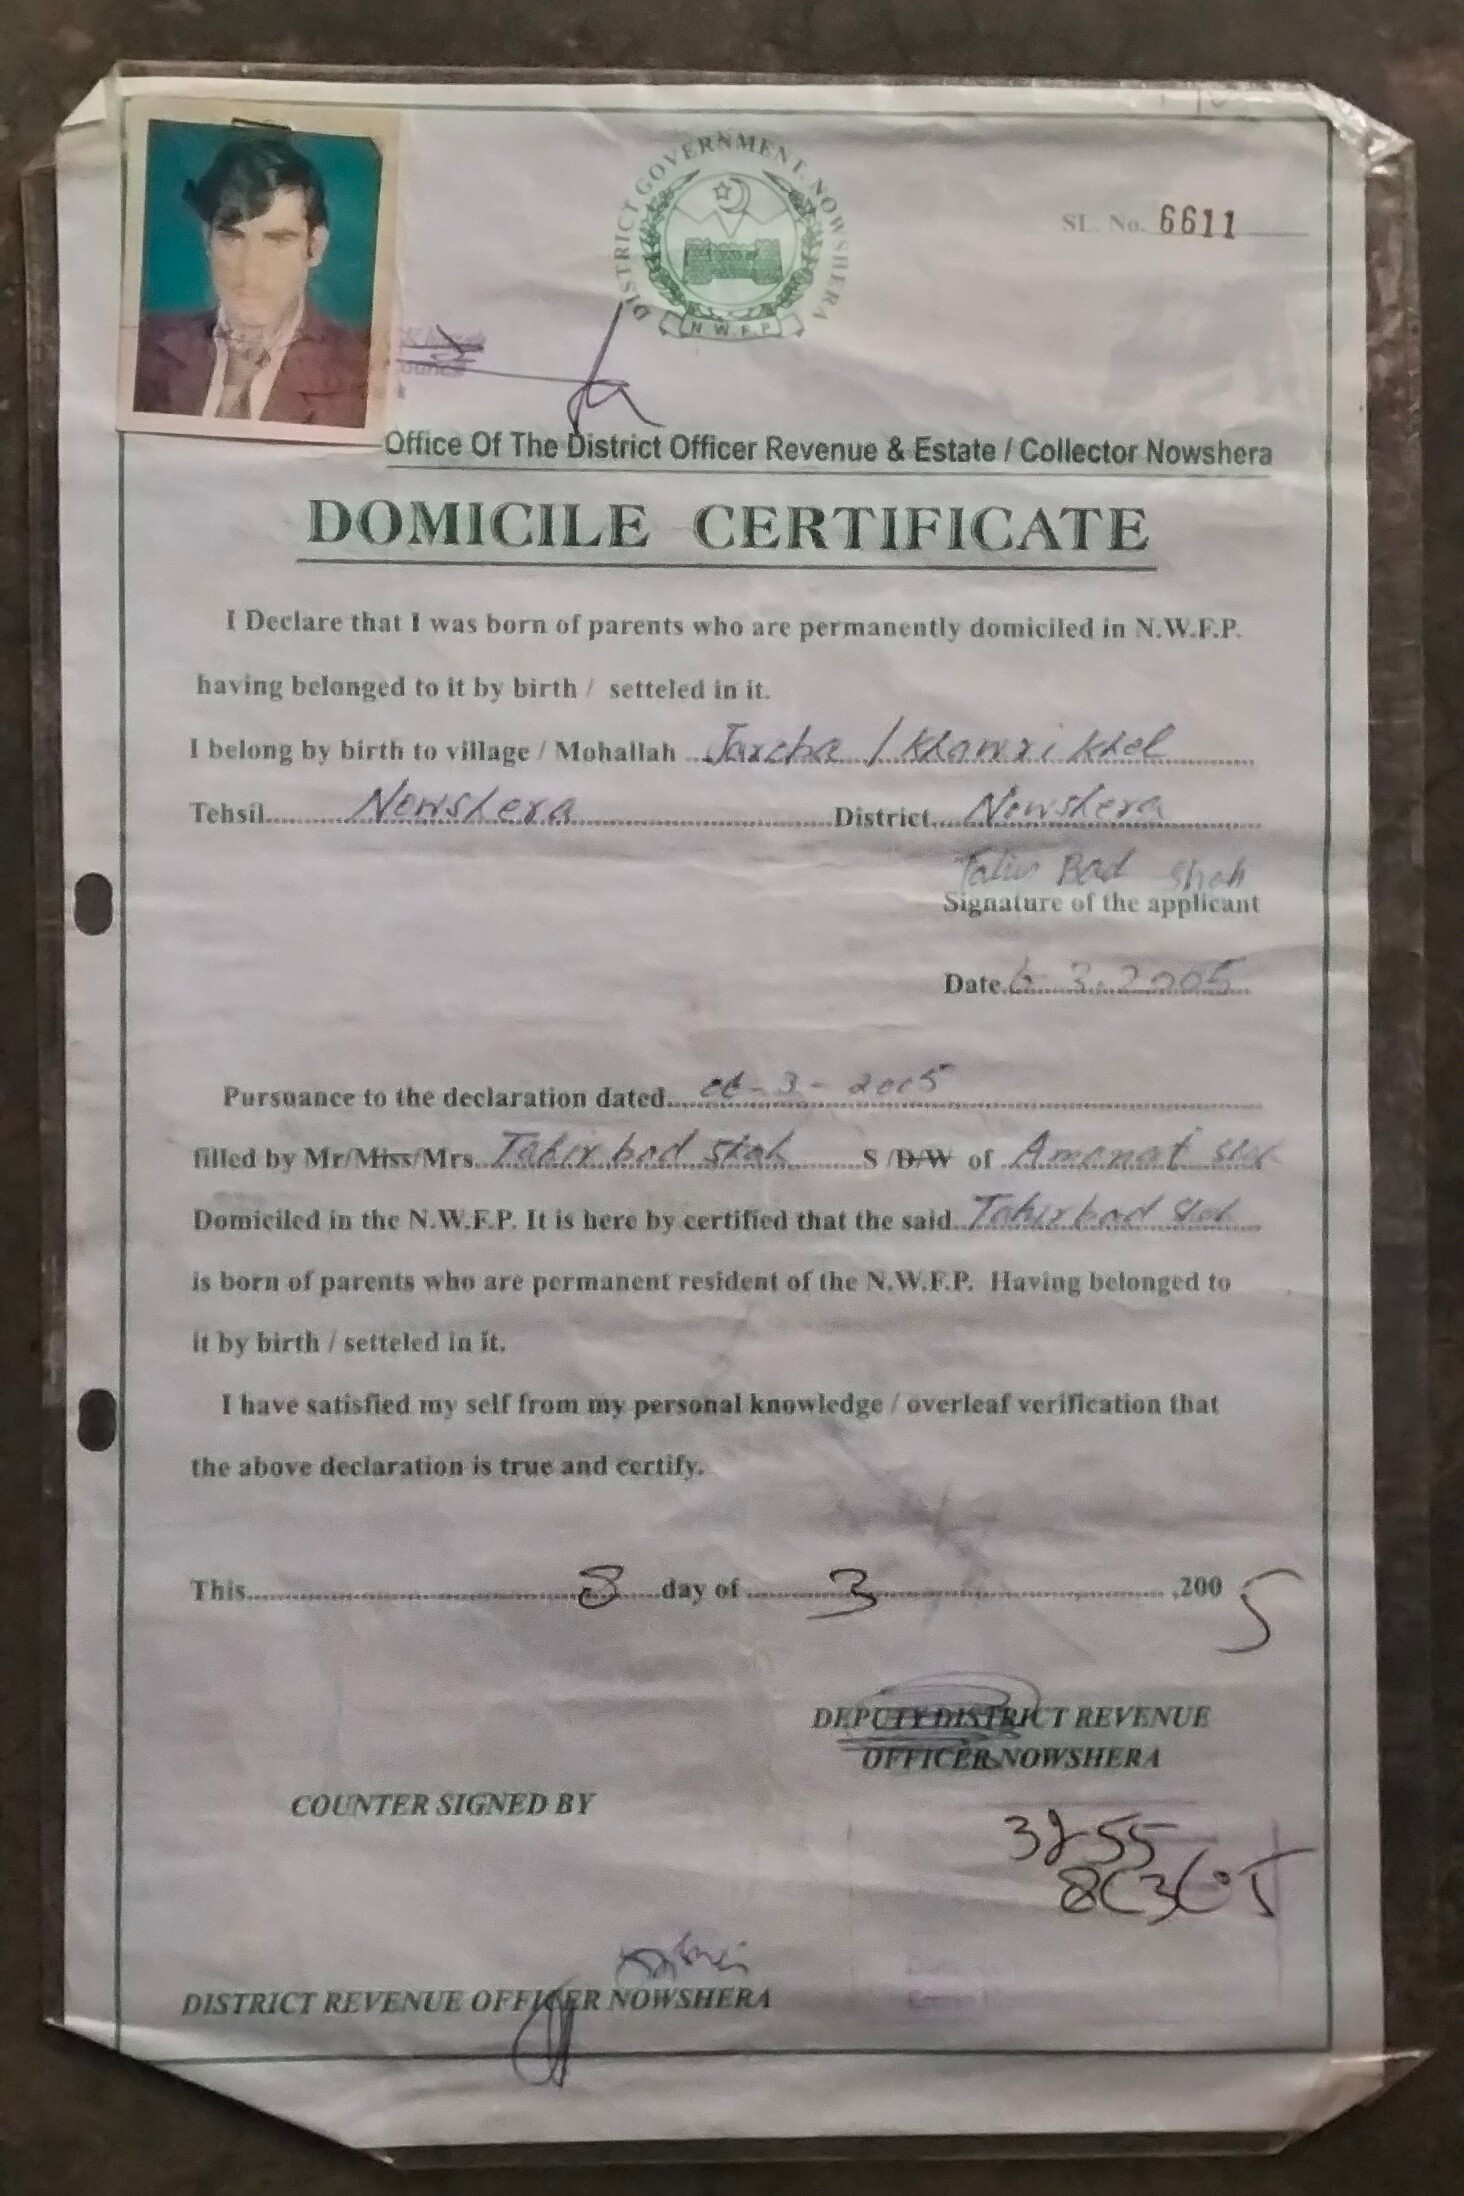 DISTRICT GOVERNMENT NOWSHERA
N.W.F.P
SL. No. 6611
Office Of The District Officer Revenue & Estate / Collector Nowshera
DOMICILE CERTIFICATE
I Declare that I was born of parents who are permanently domiciled in N.W.F.P.
having belonged to it by birth / setteled in it.
I belong by birth to village / Mohallah Jaroba / Khawri Khel
Tehsil Nowshera District Nowshera
Tahir Bad Shah
Signature of the applicant
Date 6 3.2005
Pursuance to the declaration dated 06-3-2005
filled by Mr/Miss/Mrs Tahir bad Shah S/D/W of Amanat Shah
Domiciled in the N.W.F.P. It is here by certified that the said Tahir bad Shah
is born of parents who are permanent resident of the N.W.F.P. Having belonged to
it by birth / setteled in it.
I have satisfied my self from my personal knowledge / overleaf verification that
the above declaration is true and certify.
This 8 day of 3 ,200 5
DEPUTY DISTRICT REVENUE
OFFICER NOWSHERA
COUNTER SIGNED BY
DISTRICT REVENUE OFFICER NOWSHERA